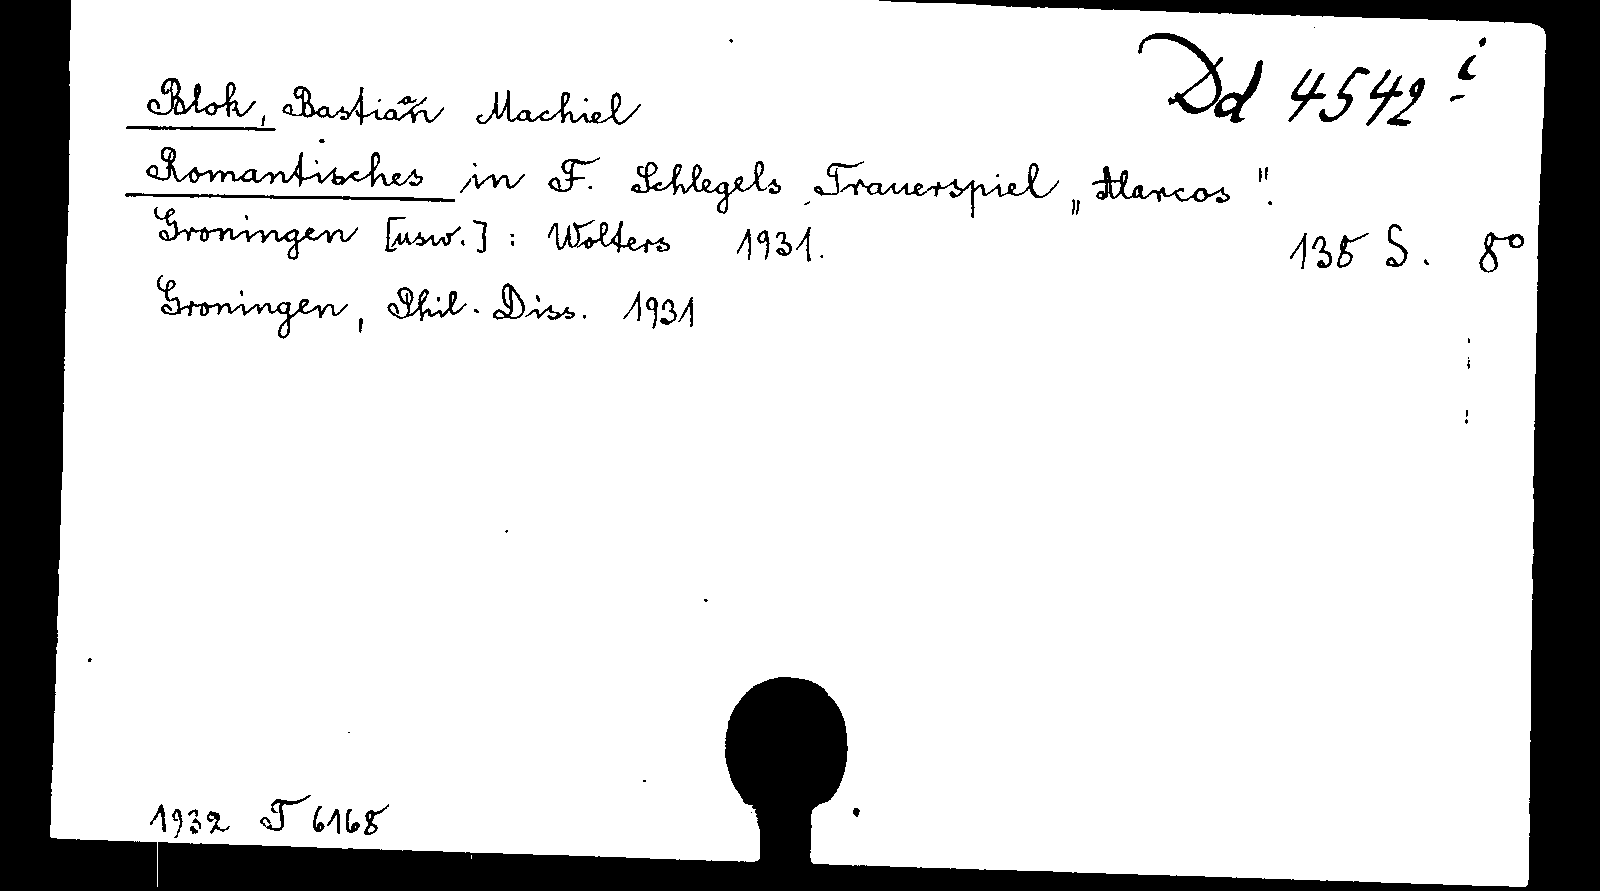 Dd 4542 i
Blok, Bastiaan Machiel
Romantisches in F. Schlegels Trauerspiel „Alarcos".
Groningen [usw.] : Wolters 1931. 138 S. 8°
Groningen, Phil. Diss. 1931
1932 T 6168